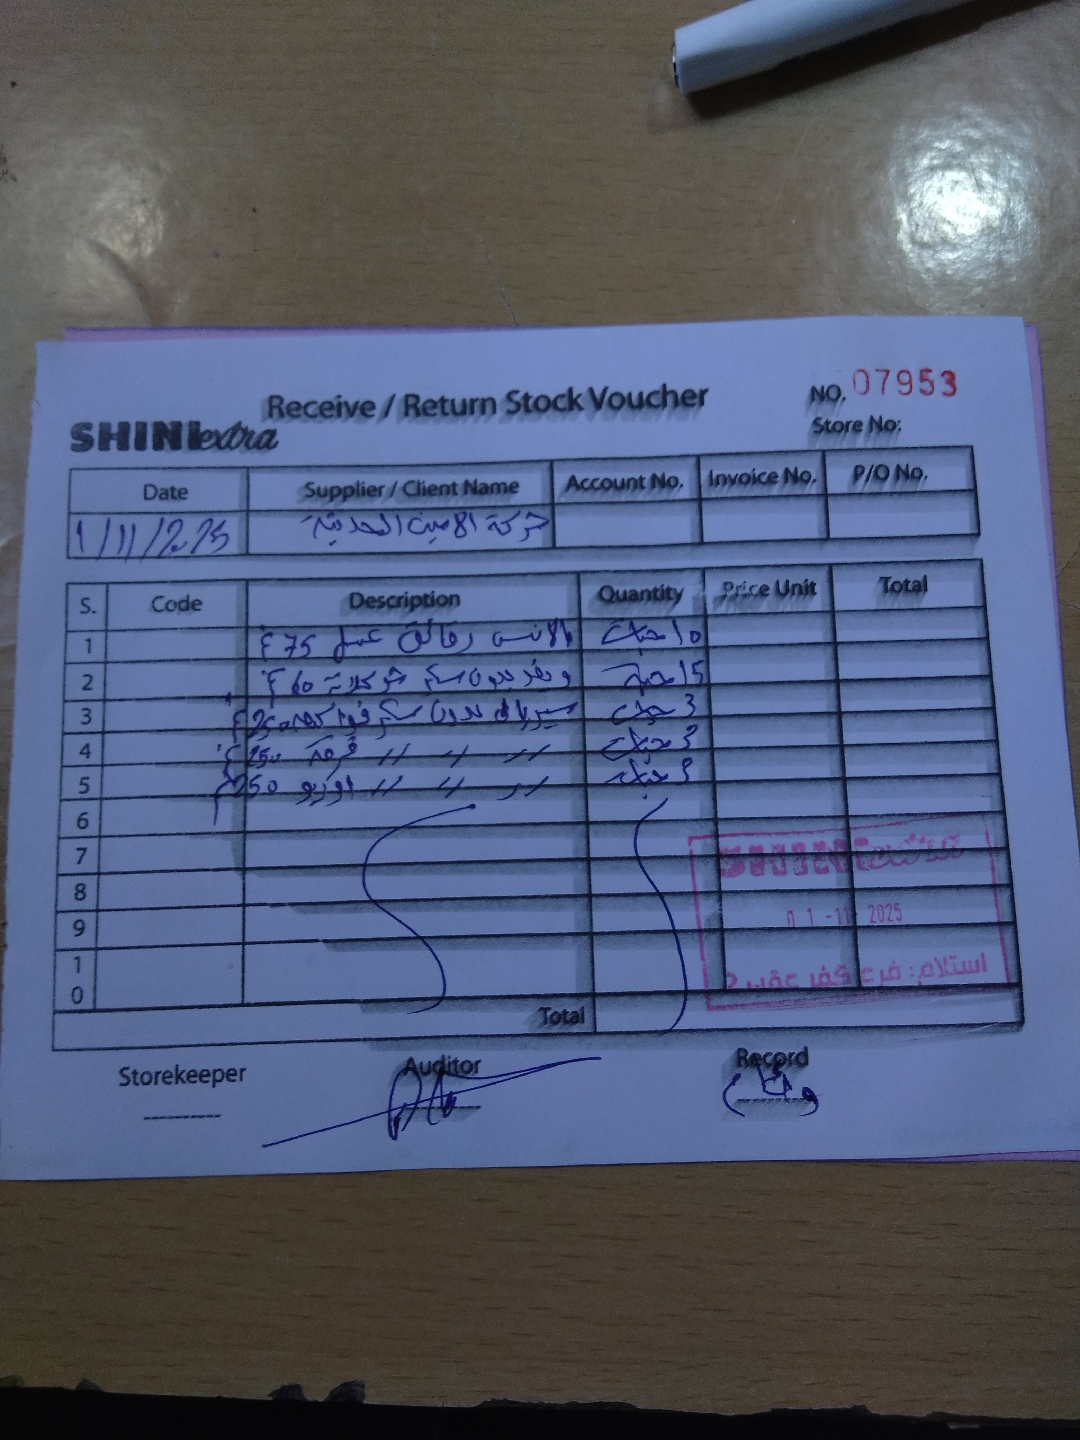 Receive / Return Stock Voucher
NO. 07953
SHINIextra
Store No:
Date Supplier / Client Name Account No. Invoice No. P/O No.
1/11/2025 شركة الامين الحديثة
S. Code Description Quantity Price Unit Total
1 بالانس رقائق عسل 75غ 10 حبات
2 ويفر بدون سكر شوكلاتة 60غ 15 حبة
3 بدون سكر 250غ 3 حبات
4 // // // قرفة 250غ 3 حبات
5 // // // اوريو 250غ 3 حبات
6
7
SHINIextra
8
9
01-11 2025
10
استلام: فرع كفر عقب 2
Total
Storekeeper Auditor Record